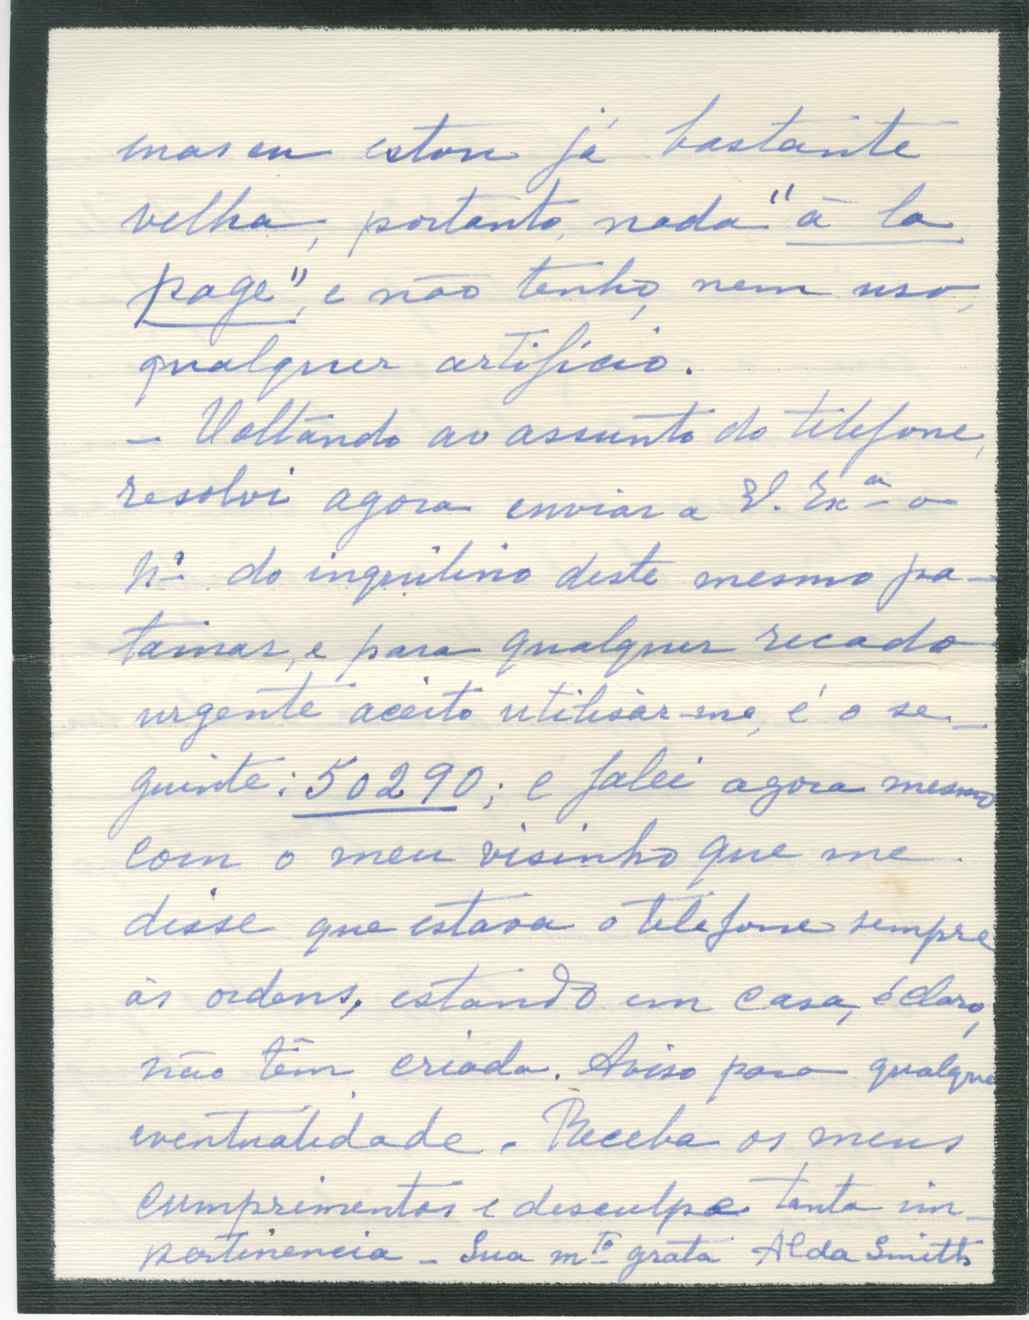 mas eu estou já bastante
velha, portanto, nada "à la
page", e não tenho, nem uso,
qualquer artifício.
— Voltando ao assunto do telefone,
resolvi agora enviar a V. Exª o
Nº do inquilino deste mesmo pa-
tamar, e para qualquer recado
urgente aceito utilisar-me, é o se-
guinte: 50290; e falei agora mesmo
com o meu visinho que me
disse que estava o telefone sempre
às ordens, estando em casa, é claro,
não têm criada. Aviso para qualquer
eventualidade. Receba os meus
cumprimentos e desculpe tanta im-
pertinencia – Sua mtº grata Alda Smith